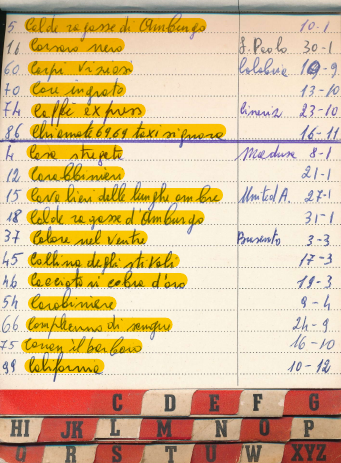 5 Calde ragasse di Amburgo 10-1
16 Corsaro nero S. Paolo 30-1
60 Corpi viziosi Calabria 10-9
70 Core ingrato 13-10
74 Caffè express 23-10
86 Chiamate 6969 taxi signora 16-11
4 Casa stregata Medusa 8-1
12 Carabbinieri 21-1
15 Cavalieri dalle lunghe ombre United A. 27-1
18 Calde ragasse d'Amburgo 31-1
37 Calore nel ventre 3-3
45 Collina degli stivali 17-3
46 Cacciatori cobra d'oro 19-3
54 Carabiniere 9-4
66 Compleanno di sangue 24-9
75 Conan il barbaro 16-10
99 California 10-12
C D E F G
HI JK L M N O P
Q R S T U W XYZ